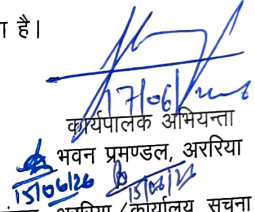 है।
17/06/
कार्यपालक अभियन्ता
भवन प्रमण्डल, अररिया
15/06/26 15/06/26
अररिया / कार्यालय सूचना